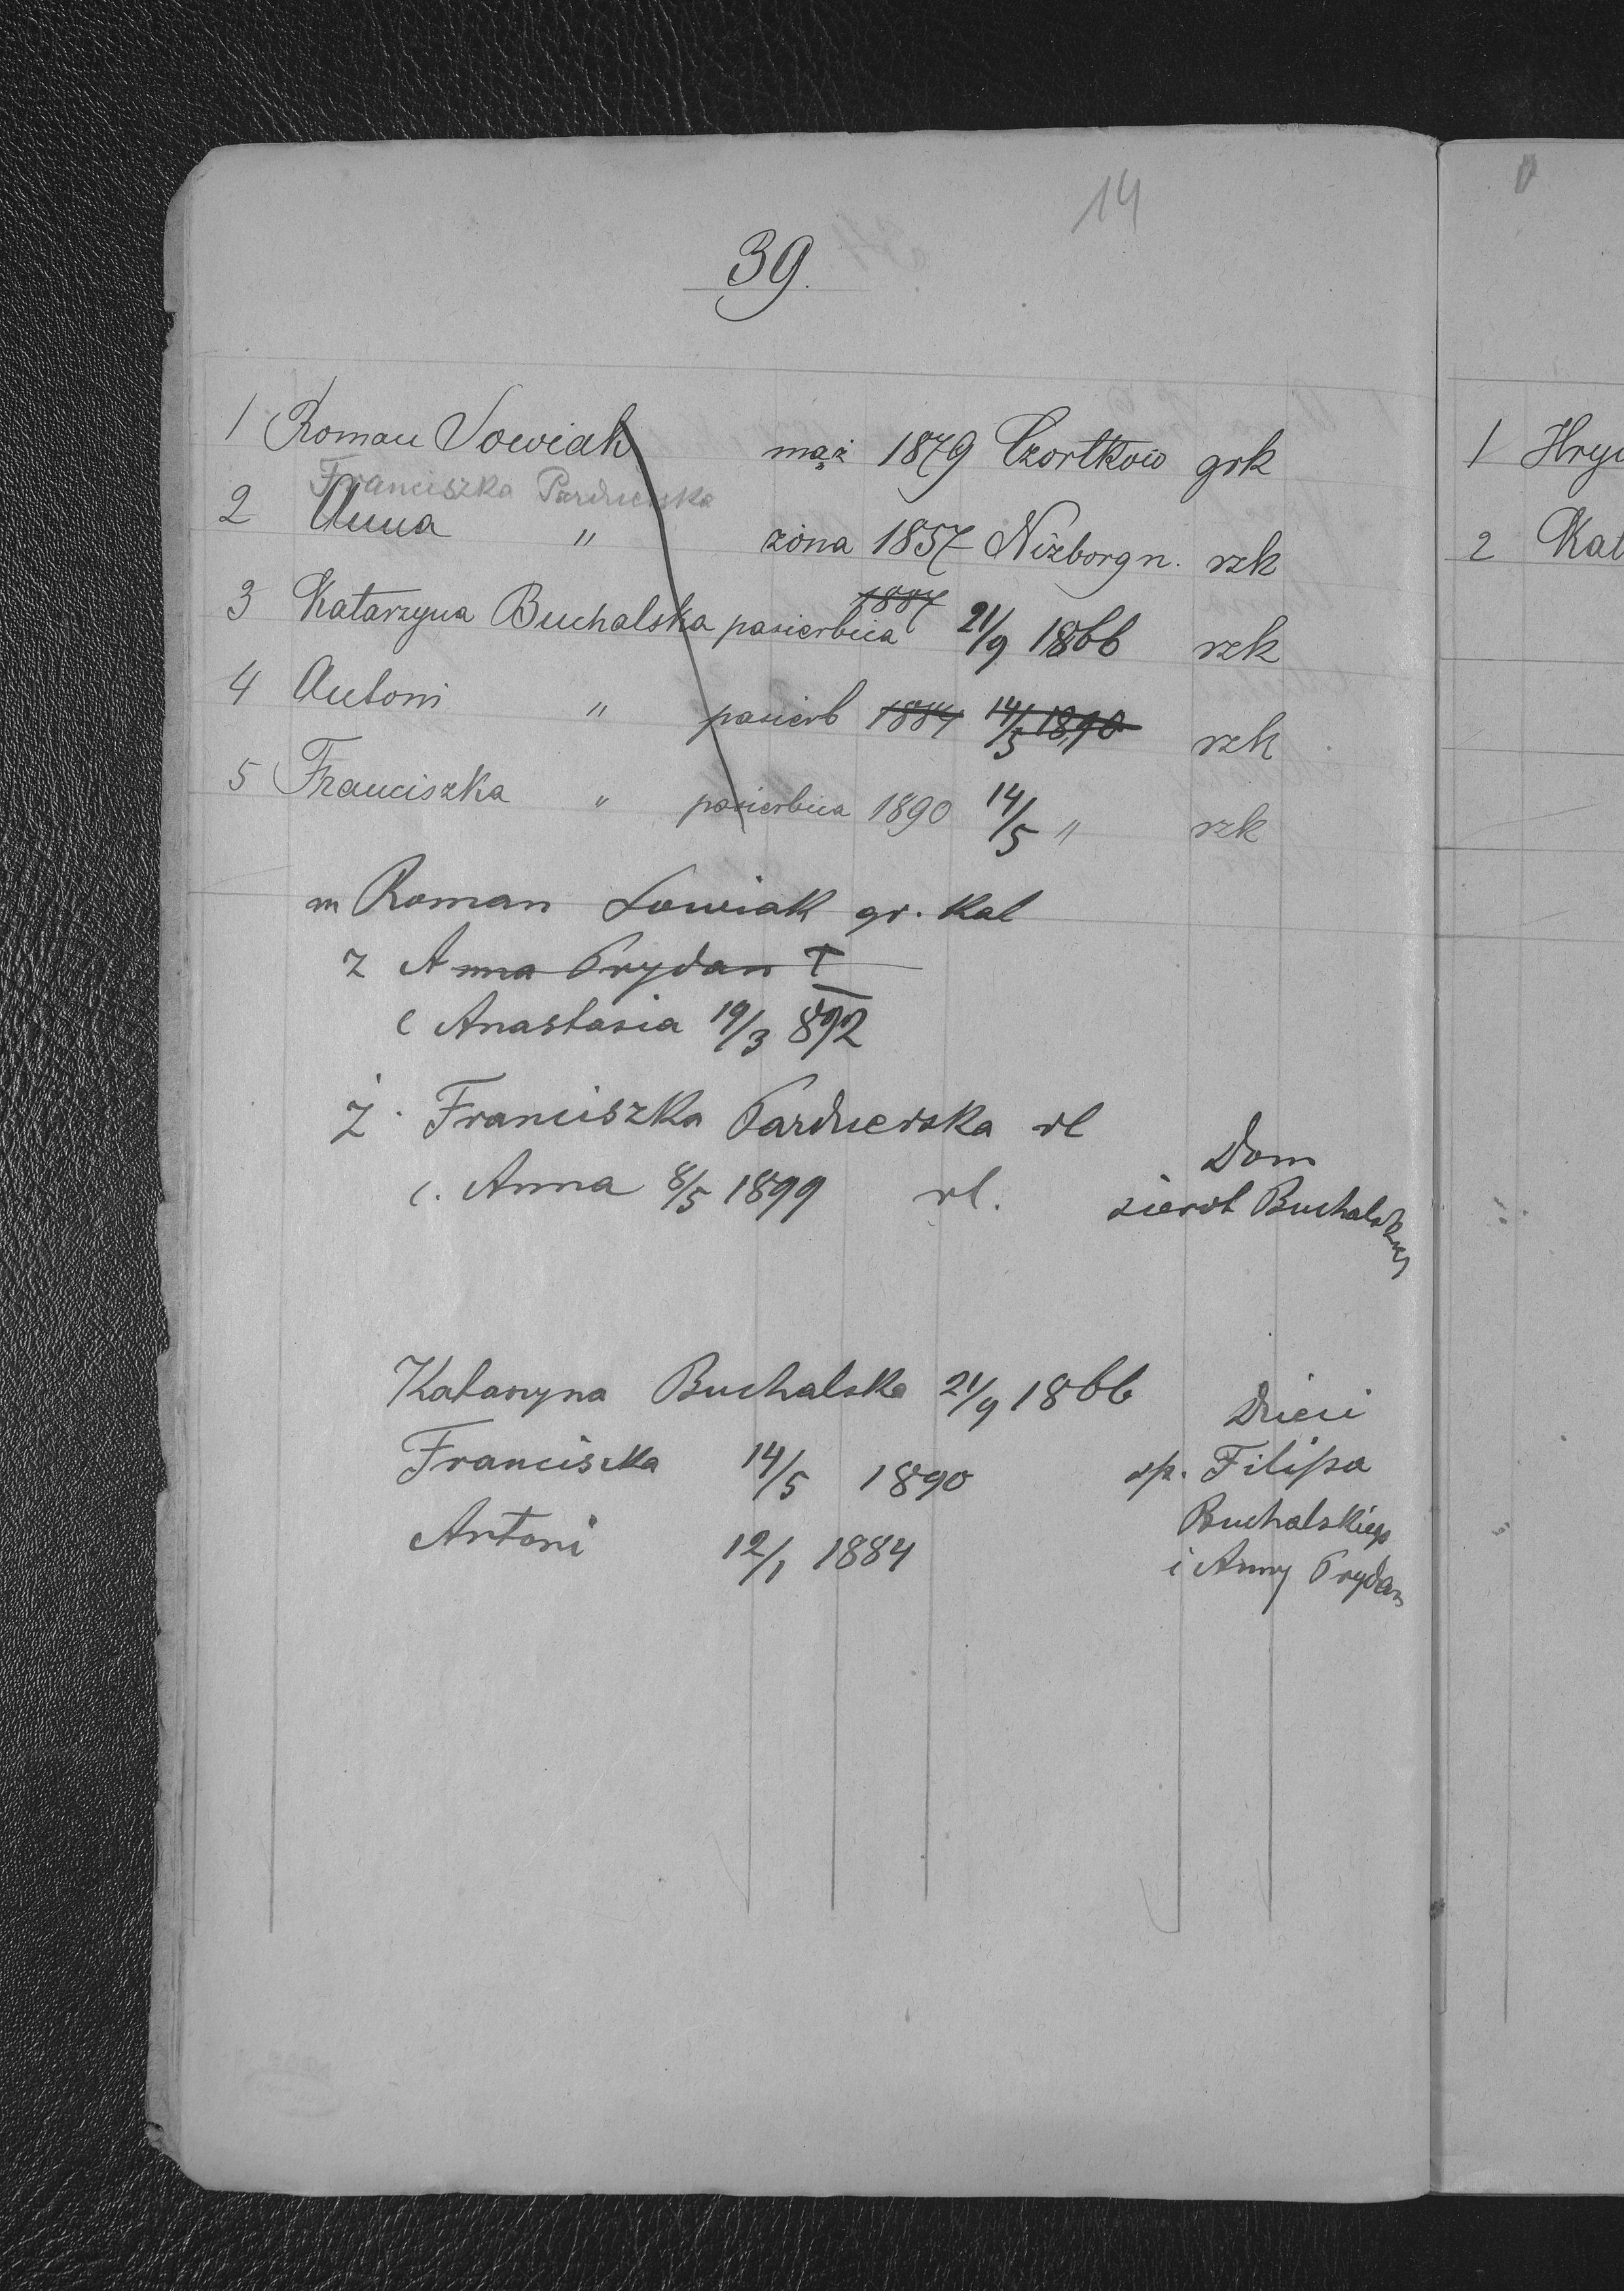 14
39.
1 Roman Sowiak mąż 1879 Czortków grk
Franciszka Parducerska
2 Anna " żona 1857 Niżborg n. rzk
1887
3 Katarzyna Buchalska pasierbica 21/9 1866 rzk
4 Antoni " pasierb 1884 14/5 1890 rzk
5 Franciszka " pasierbica 1890 14/5 " rzk
m Roman Sowiak gr. kat
ż Anna Prydan †
c Anastasia 19/3 892
ż. Franciszka Parducerska rl
c. Anna 8/5 1899 rl.
Dom
sierot Buchalskich
Katarzyna Buchalska 21/9 1866
Franciszka 14/5 1890
Antoni 12/1 1884
Dzieci
śp. Filipa
Buchalskiego
i Anny Prydan
1 Hry
2 Kat